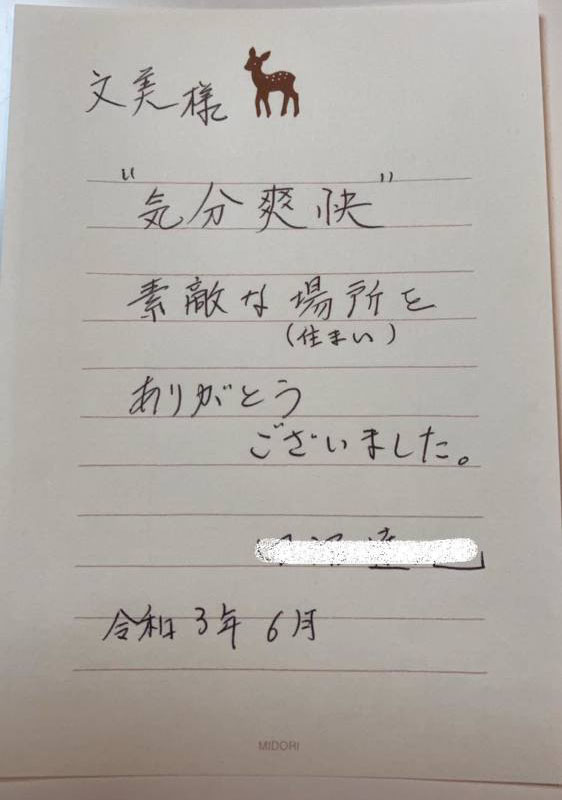 文美様
"気分爽快"
素敵な場所を
(住まい)
ありがとう
ございました。
令和3年6月
MIDORI